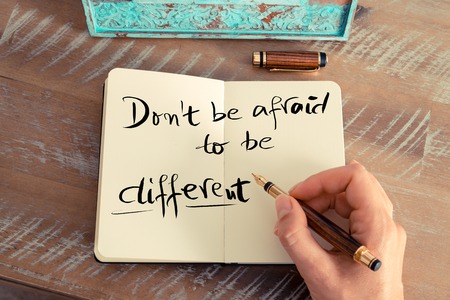 Don't be afraid
to be
different